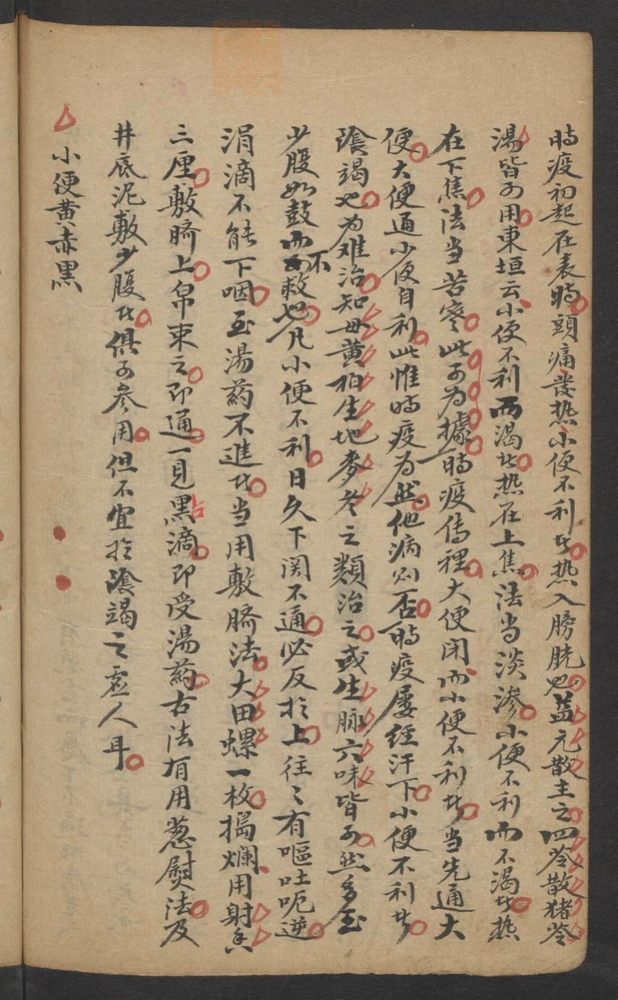 時疫初起在表時頭痛發热小便不利者热入膀胱也益元散主之四苓散猪苓
湯皆可用東垣云小便不利而渴者热在上焦法当淡渗小便不利而不渴者热
在下焦法当苦寒此可为據時疫传裡大便闭而小便不利者当先通大
便大便通小便自利此惟時疫为然他病则否時疫屡经汗下小便不利者
陰竭也为难治知母黄柏生地麥冬之類治之或生脉六味皆可然多至
少腹如鼓而不救也凡小便不利日久下関不通必反於上往〻有嘔吐呃逆
涓滴不能下咽至湯药不進者当用敷臍法大田螺一枚搗爛用射香
三厘敷臍上帛束之即通一見黑滴即受湯药古法有用葱熨法及
井底泥敷少腹者俱可参用但不宜於陰竭之虚人耳
小便黄赤黑